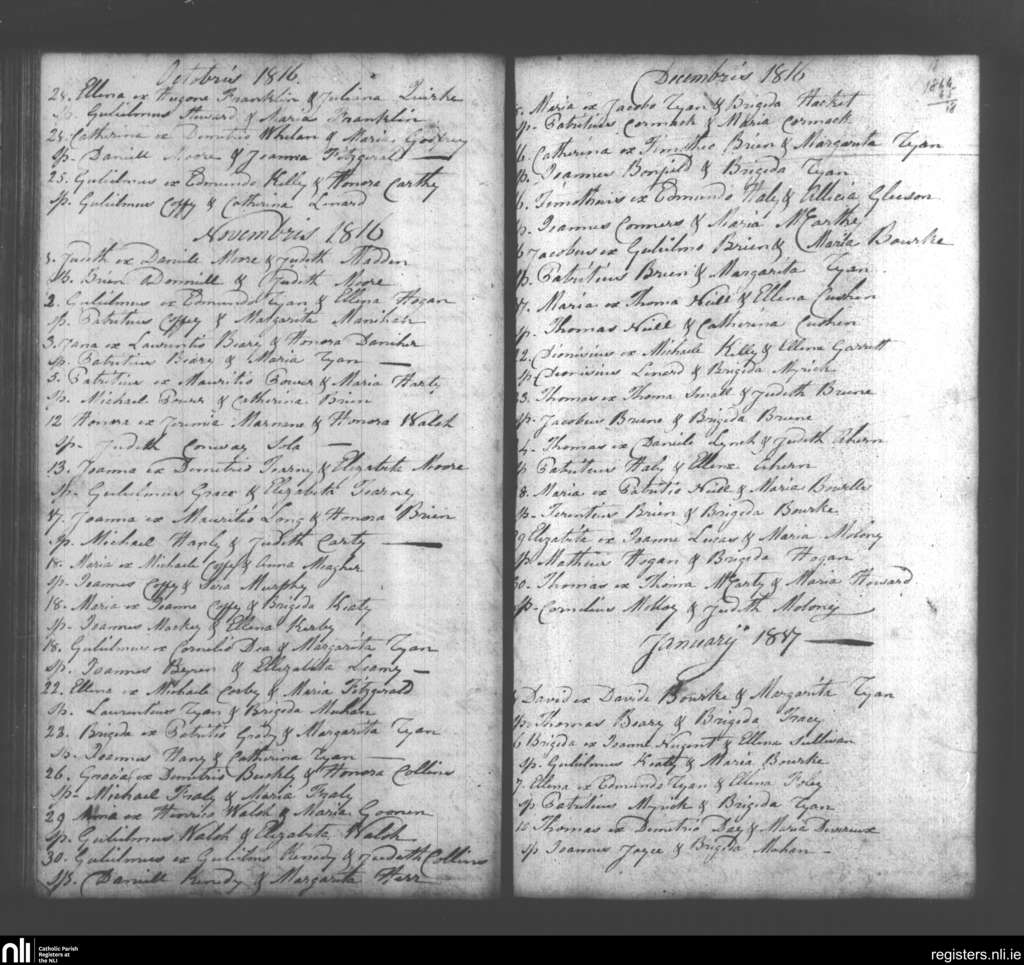 Octobris 1816
24. Ellena ex Hugone Franklin & Juliana Quirke
Sp. Gulielmus Steward & Maria Franklin
24. Catherina ex Demetrio Whelan & Maria Godfrey
Sp. Daniell Moore & Joanna Fitzgerald
25. Gulielmus ex Edmundo Kelly & Honora Carthy
Sp. Gulielmus Coffy & Catherina Linard
Novembris 1816
Judith ex Daniele Moore & Judith Madden
Sp. Brien Donnill & Judith Moore
2. Gulielmus ex Edmundo Tyan & Ellena Hogan
Sp. Patritius Coffey & Margarita Manihan
3. ex Laurentio Beary & Honora Danicher
Sp. Patritius Beary & Maria Tyan
5. Patritius ex Mauritio Power & Maria Harty
Sp. Michael Power & Catherina Brien
12 Honora ex Jeremia Marnane & Honora Walsh
Sp. Judith Conway Sola
13. Joanna ex Demetrio Tearny & Elizabeta Moore
Sp. Gulielmus Grace & Elizabeta Tearney
17. Joanna ex Mauritio Long & Honora Brien
Sp. Michael Hanly & Judith Carty
18. Maria ex Michaele Coffy & Anna Meagher
Sp. Joannes Coffy & Murphy
18. Maria ex Joanne Coffy & Brigida Kiaty
Sp. Joannes Mackey & Ellena Kerby
18. Gulielmus ex Cornelio Dea & Margarita Tyan
Sp. Joannes & Ellizabeta Leamy
22. Ellena ex Michaele Corby & Maria Fitzgerald
Sp. Laurentius Tyan & Brigida Mahan
23. Brigida ex Patritio Grady & Margarita Tyan
Sp. Joannes Hany & Catherina Tyan
26. Gracia ex Demetrio Buckly & Honora Collins
Sp. Michael Fraly & Maria Fraly
29 Anna ex Henrico Walsh & Maria Goonen
Sp. Gulielmus Walsh & Elizabeta Walsh
30. Gulielmus ex Gulielmo Kenedy & Judith Collins
Sp. Daniell Kenedy & Margarita Harr
Decembris 1816
Maria ex Jacobo Tyan & Brigida Hacket
Sp. Patritius Cormack & Maria Cormack
6. Catherina ex Timotheo Brien & Margarita Tyan
Sp. Joannes Bonfield & Brigida Tyan
6. Timotheus ex Edmundo Haly & Allicia Gleeson
Sp. Joannes Conners & Maria McCarthy
6 Jacobus ex Gulielmo Brien & Maria Bourke
Sp. Patritius Brien & Margarita Tyan
17. Maria ex Thoma Neill & Ellena Cushen
Sp. Thomas Neill & Catherina Cushen
22. Dionisius ex Michaele Kelly & Ellena Garrett
Sp. Dionisius Linard & Brigida Myrick
23. Thomas ex Thoma Small & Judith Bruene
Sp. Jacobus Bruene & Brigida Bruene
Thomas ex Daniele Lynch & Judith Ahern
Sp. Patritius Haly & Ellena Ahern
8. Maria ex Patritio Neill & Maria Bourke
Sp. Terentius Brien & Brigida Bourke
29 Elizabeta ex Joanne Lucas & Maria Molony
Sp. Matheus Hogan & Brigida Hogan
30. Thomas ex Thoma McCarty & Maria Howard
Sp. Cornelius Molloy & Judith Moloney
Januarij 1817
David ex Davide Bourke & Margarita Tyan
Sp. Thomas Beary & Brigida Tracey
6 Brigida ex Joanne Nugent & Ellena Sullivan
Sp. Gulielmus Kiaty & Maria Bourke
7. Ellena ex Edmundo Tyan & Ellena Foley
Sp Patritius Myrick & Brigida Tyan
12 Thomas ex Demetrio Day & Maria Devereux
Sp Joannes Joyce & Brigida Mahan
nli Catholic Parish
Registers at
the NLI
registers.nli.ie